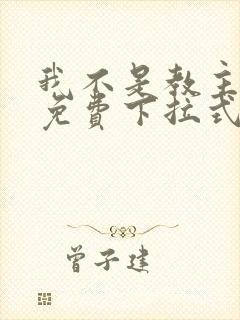 我不是教主
免费下拉式
曾子建